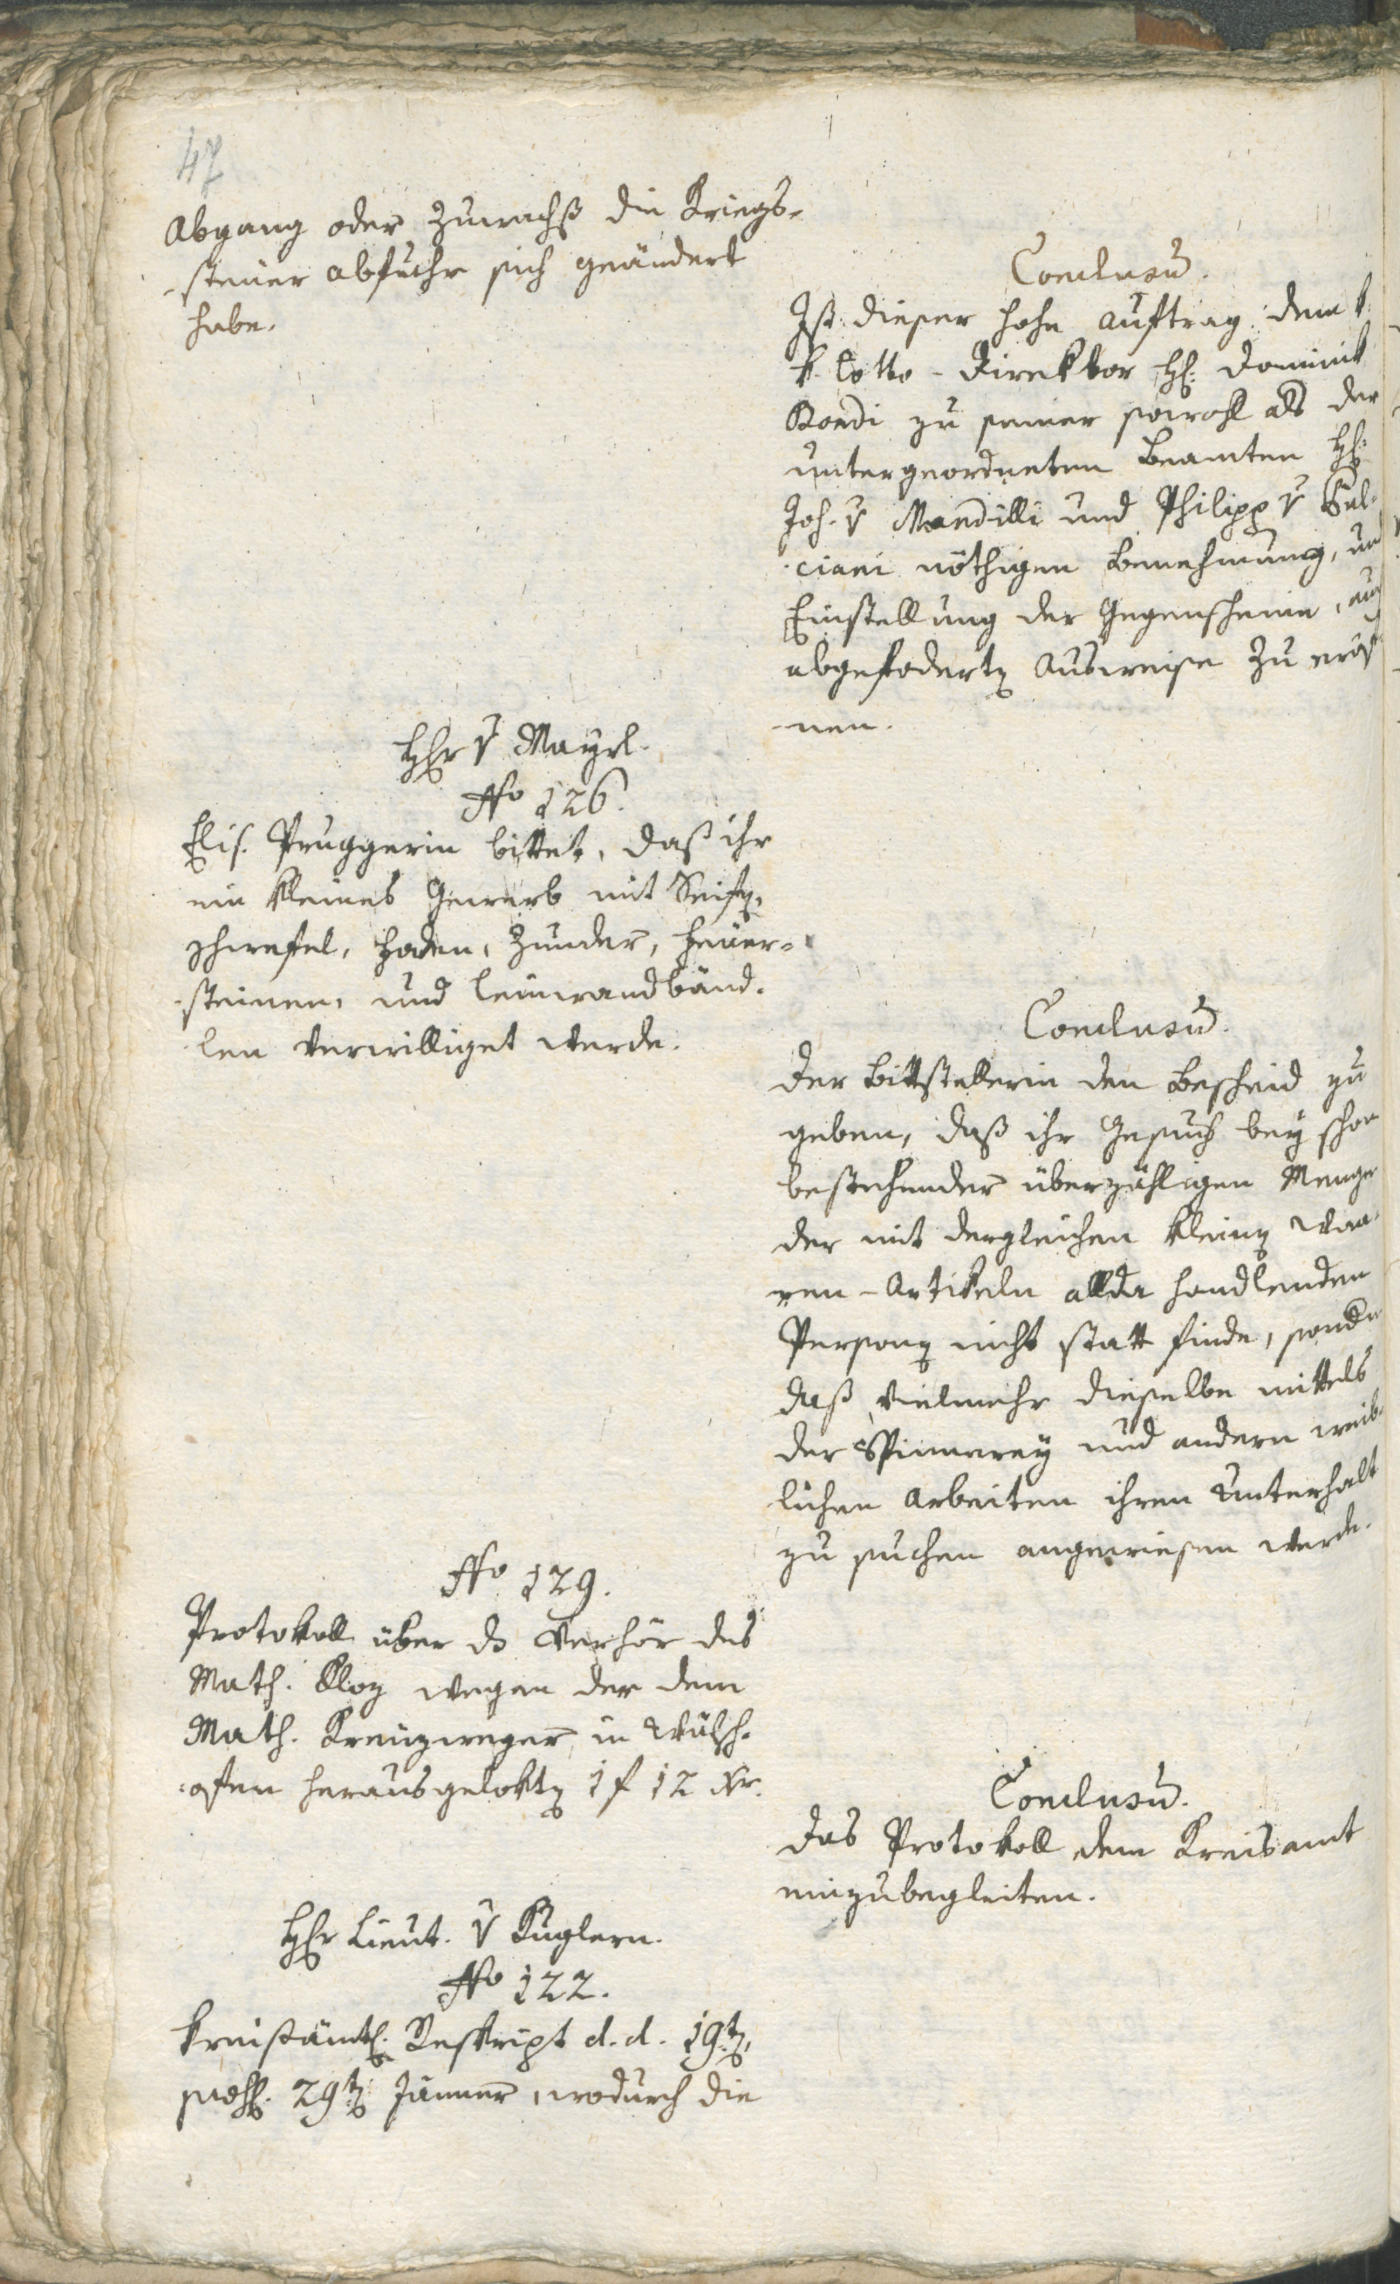 47
Abgang oder Zuwachß die Kriegs-
-steuer abfuhr sich geändert
habe.
Conclusū.
Ist dieser hohe Auftrag dem k
k. Lotto-Direktor H: Dominik
Bondi zu seiner sowohl als der
untergeordneten Beamten H:
Joh. v Mandilli und Philipp v Sal-
-ciani nöthigen Benehmung, und
Einstellung der Gegenscheine, auch
abgefoderten Ausweise zu eröf
-nen.
Hr v Mayrl.
No 126.
Elis. Pruggerin bittet, daß ihr
ein kleines Gewerb mit Seifen,
Schwefel, Faden, Zunder, Feuer-
-steinen, und Leinwandbänd-
len verwilliget werde.
Conclusū.
Der Bittstellerin den Bescheid zu
geben, daß ihr Gesuch bey schon
bestehender überzähligen Menge
der mit dergleichen kleinen Waa-
ren-Artikeln allda handlenden
Personen nicht statt finde, sondern
daß vielmehr dieselbe mittels
der Spinnerey und andern weib-
lichen Arbeiten ihren Unterhalt
zu suchen angewiesen werde.
No 129.
Protokoll über das Verhör des
Math. Kloz wegen der dem
Math. Kreuzweger in Wälsch-
-ofen herausgelokten 1 f 12 Xr.
Conclusū.
Das Protokoll dem Kreisamt
einzubegleiten.
Hr Lieut. v Kuglern.
No 122.
Kreißämtl. Reskript d. d. 19ten,
præs. 29ten Jänner, wodurch die